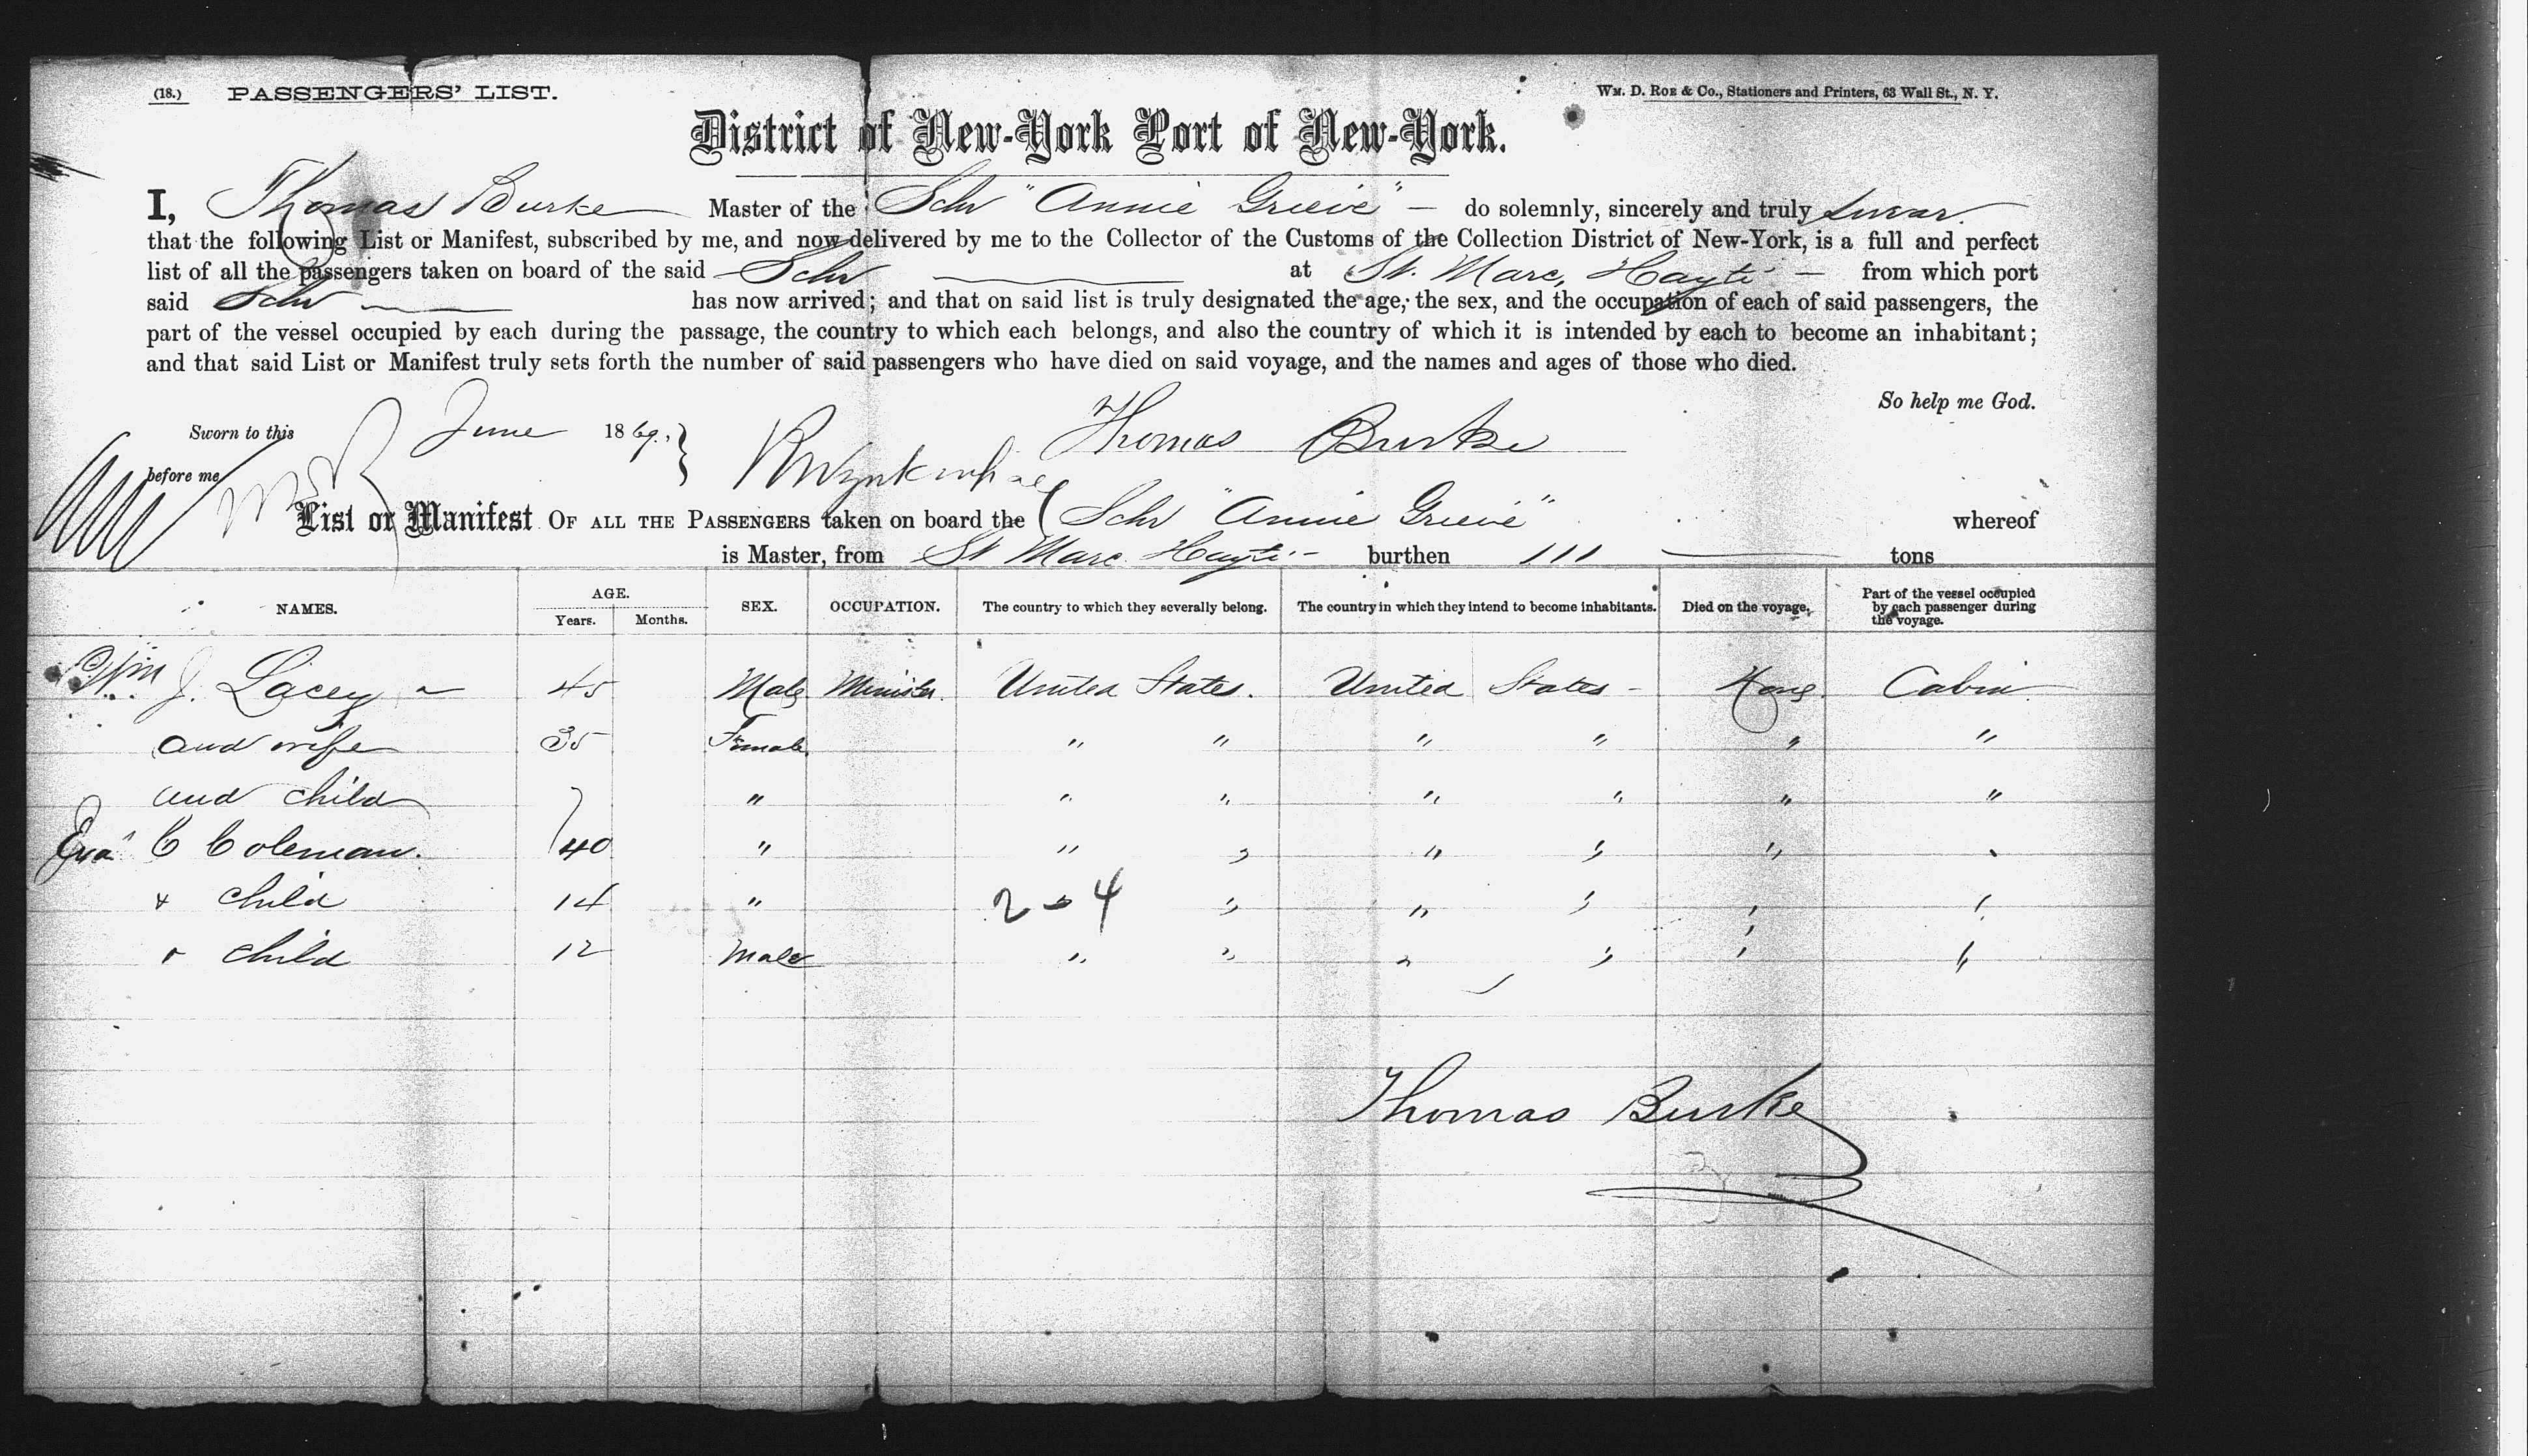 (18.) PASSENGERS' LIST.
WM. D. ROE & Co., Stationers and Printers, 63 Wall St., N. Y.
District of New-York Port of New-York.
I, Thomas Burke Master of the Schr "Annie Grieve" — do solemnly, sincerely and truly swear.
that the following List or Manifest, subscribed by me, and now delivered by me to the Collector of the Customs of the Collection District of New-York, is a full and perfect
list of all the passengers taken on board of the said Schr at St. Marc, Hayti — from which port
said Schr has now arrived; and that on said list is truly designated the age, the sex, and the occupation of each of said passengers, the
part of the vessel occupied by each during the passage, the country to which each belongs, and also the country of which it is intended by each to become an inhabitant;
and that said List or Manifest truly sets forth the number of said passengers who have died on said voyage, and the names and ages of those who died.
So help me God.
Sworn to this June 1869.
Thomas Burke
before me
List or Manifest OF ALL THE PASSENGERS taken on board the Schr "Annie Grieve" whereof
is Master, from St Marc Hayti — burthen 111 tons
NAMES. AGE. Years. Months. SEX. OCCUPATION. The country to which they severally belong. The country in which they intend to become inhabitants. Died on the voyage. Part of the vessel occupied by each passenger during the voyage.
Wm J. Lacey 45 Male Minister. United States. United States - None. Cabin
and wife 35 Female " " " " " "
and child 7 " " " " " " "
C Coleman. 40 " " " " " "
& child 14 " 2-4 " " " " "
" child 12 Male " " " " " "
Thomas Burke